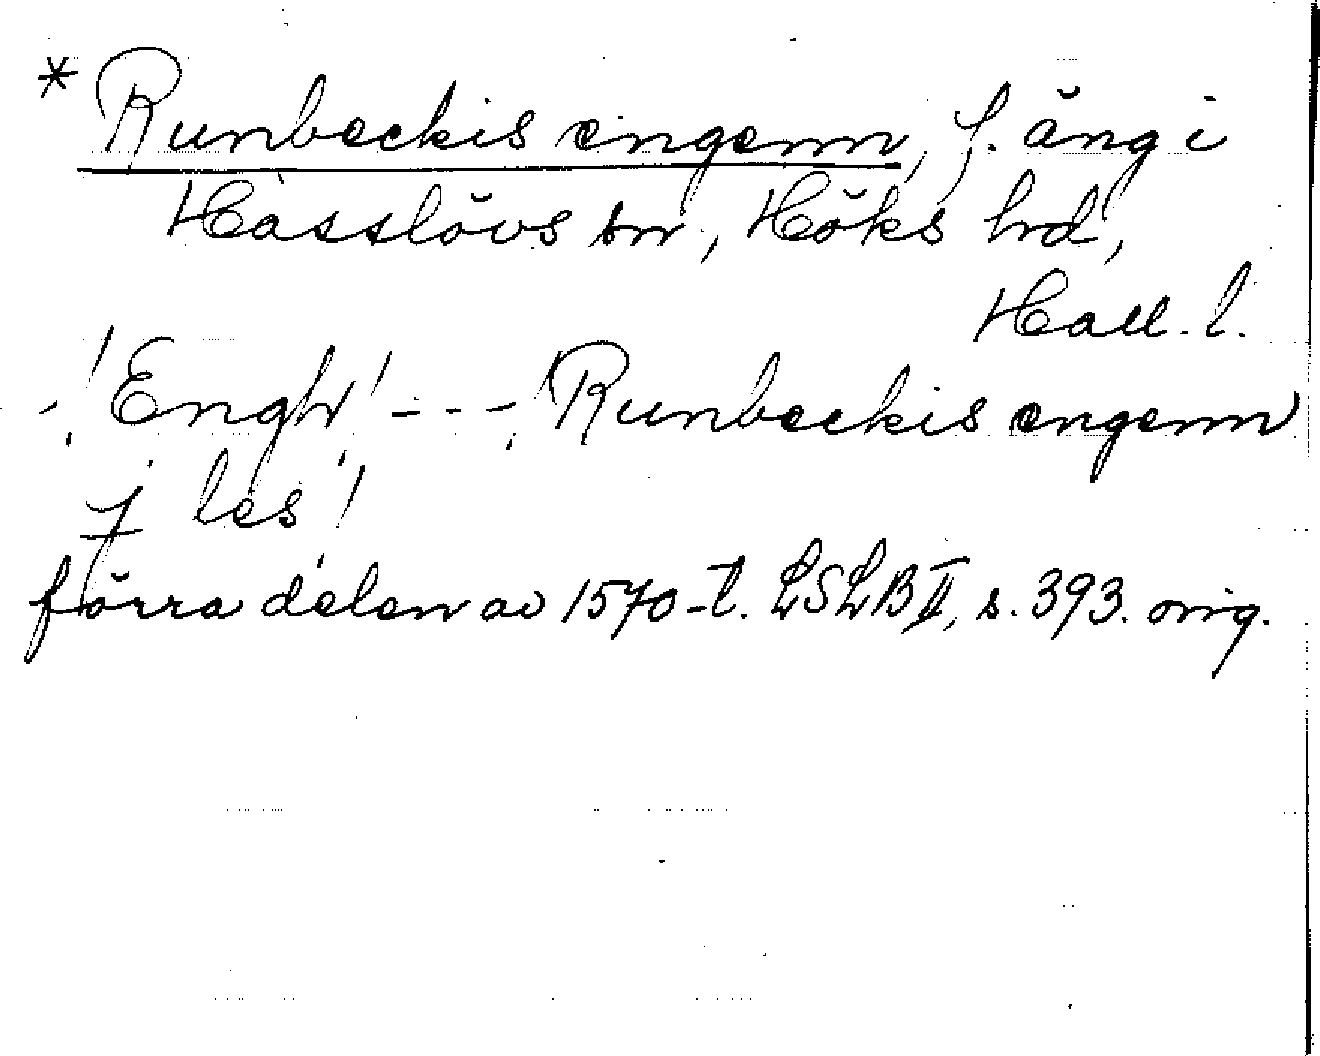 * Runbeckis engenn, f. äng i
Hasslövs sn, Höks hd,
Hall. l.
,!Engh! - - -, !Runbeckis engenn
7 les!
förra delen av 1570-t. LSLB II, s. 393. orig.